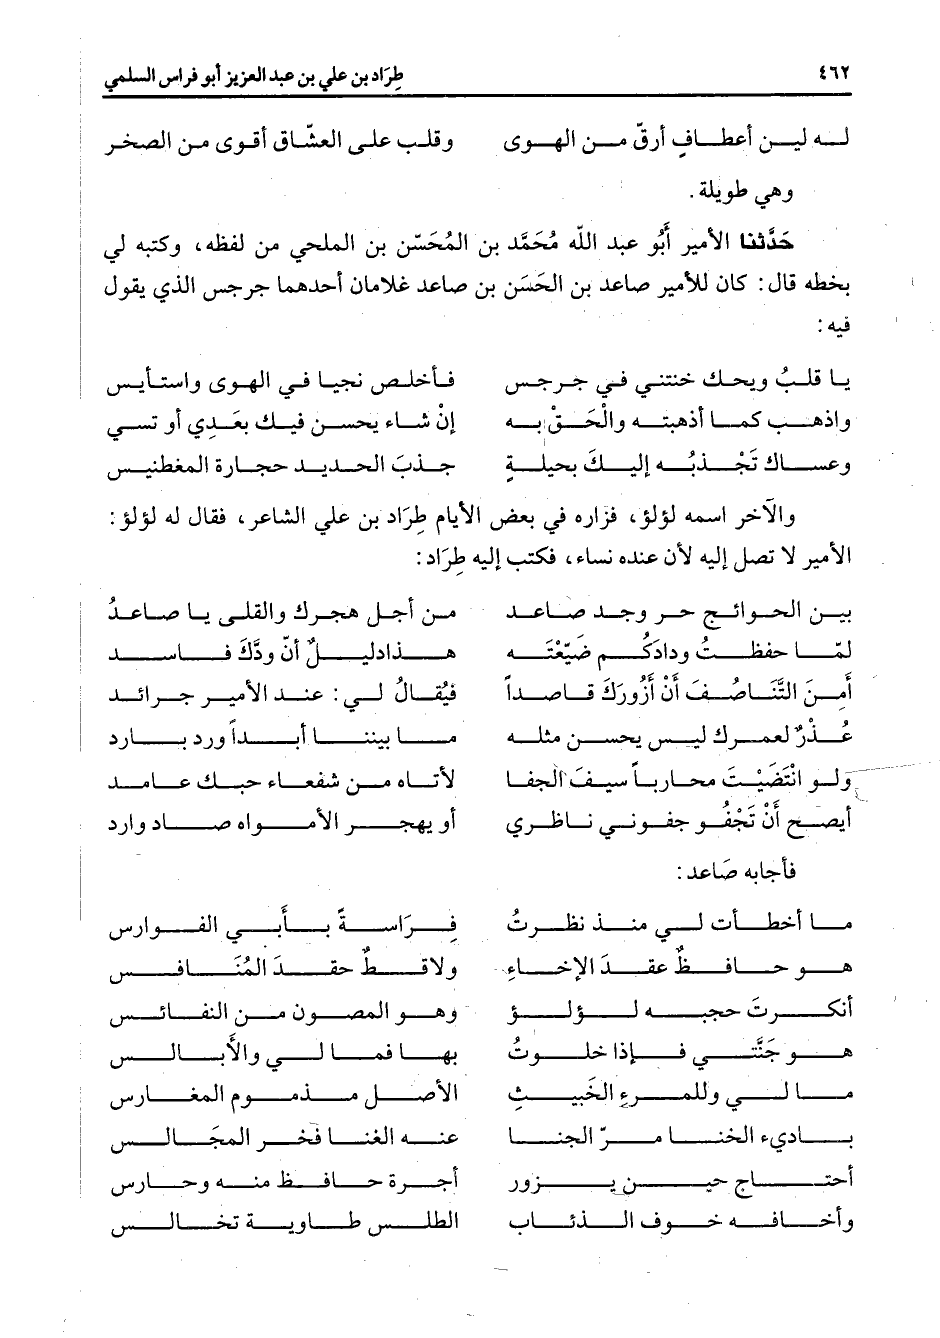 ٤٦٢ طِرَاد بن علي بن عبد العزيز أبو فراس السلمي
لـه ليـن أعطـافٍ أرقّ مـن الهـوى وقلـب علـى العشّاق أقوى مـن الصخر
وهي طويلة.
حَدَّثنا الأمير أَبُو عبد اللّه مُحَمَّد بن المُحَسّن بن الملحي من لفظه، وكتبه لي
بخطه قال: كان للأمير صاعد بن الحَسَن بن صاعد غلامان أحدهما جرجس الذي يقول
فيه:
يـا قلـبُ ويحـك خنتنـي فـي جـرجـس فـأخلـص نجيـا فـي الهـوى واستـأيـس
واذهـب كمـا أذهبتـه والْحَـقْ بـه إنْ شـاء يحسـن فيـك بعَـدِي أو تسـي
وعسـاك تَجْـذبُـه إليـكَ بحيلـةٍ جـذبَ الحـديـد حجـارة المغطنيـس
والآخر اسمه لؤلؤ، فزاره في بعض الأيام طِرَاد بن علي الشاعر، فقال له لؤلؤ:
الأمير لا تصل إليه لأن عنده نساء، فكتب إليه طِرَاد:
بيـن الحـوائـج حـر وجـد صـاعـد مـن أجـل هجـرك والقلـى يـا صـاعـدُ
لمّـا حفظـتُ ودادكُـم ضَيّعْتَـه هـذا دليـلٌ أنّ ودَّكَ فـاسـد
أَمـنَ التَّنَـاصُـفَ أَنْ أَزُورَكَ قـاصـداً فيُقـالُ لـي: عنـد الأميـر جـرائـد
عُـذْرٌ لعمـرك ليـس يحسـن مثلـه مـا بيننـا أبـداً ورد بـارد
ولـو انْتَضَيْـتَ محـاربـاً سيـفَ الجفـا لأتـاه مـن شفعـاء حبـك عـامـد
أيصـح أَنْ تَجْفُـو جفـونـي نـاظـري أو يهجـر الأمـواه صـاد وارد
فأجابه صَاعد:
مـا أخطـأت لـي منـذ نظـرتُ فِـرَاسـةً بـأَبـي الفـوارس
هـو حـافـظٌ عقـدَ الإخـاءِ ولاقـطٌ حقـدَ المُنَـافـس
أنكـرتَ حجبـه لـؤلـؤ وهـو المصـون مـن النفـائـس
هـو جَنَّتـي فـإذا خلـوتُ بهـا فمـا لـي والأَبـالـس
مـا لـي وللمـرءِ الخَبيـثِ الأصـل مـذمـوم المغـارس
بـاديء الخنـا مـرّ الجنـا عنـه الغنـا فخـر المجَـالـس
أحتـاج حيـن يـزور أجـرة حـافـظ منـه وحـارس
وأخـافـه خـوف الـذئـاب الطلـس طـاويـة تخـالـس